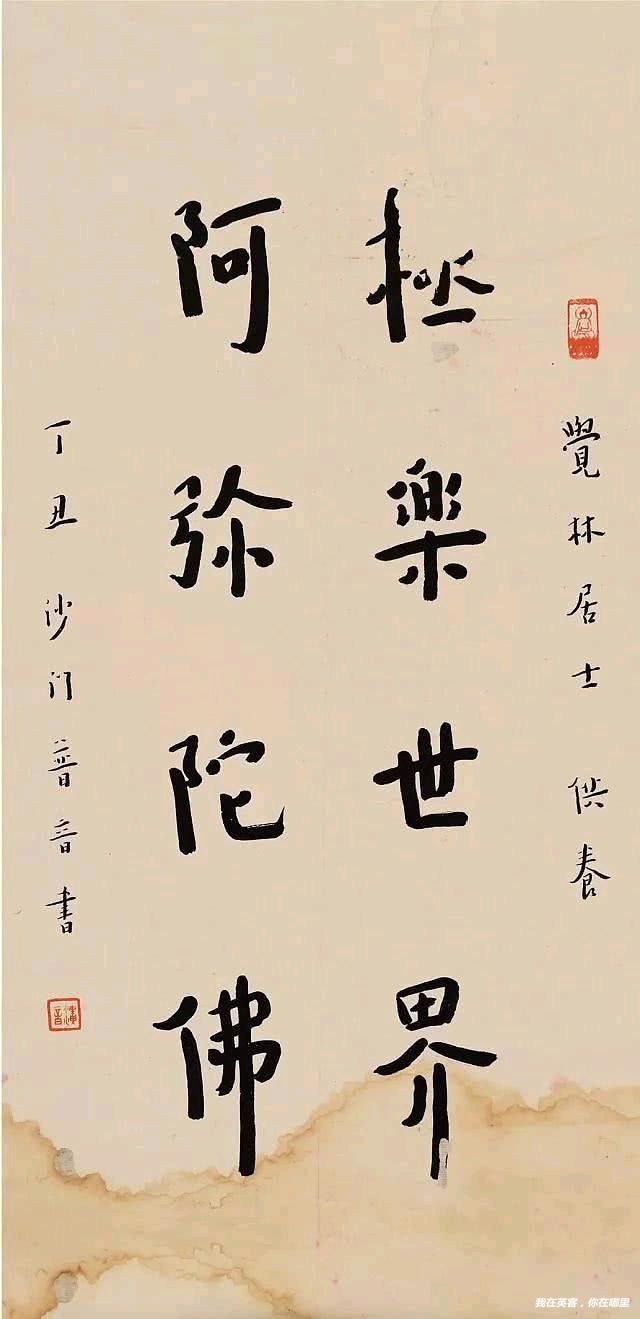 覺林居士 供養
极樂世界
阿弥陀佛
丁丑 沙门普音書
我在英客，你在哪里